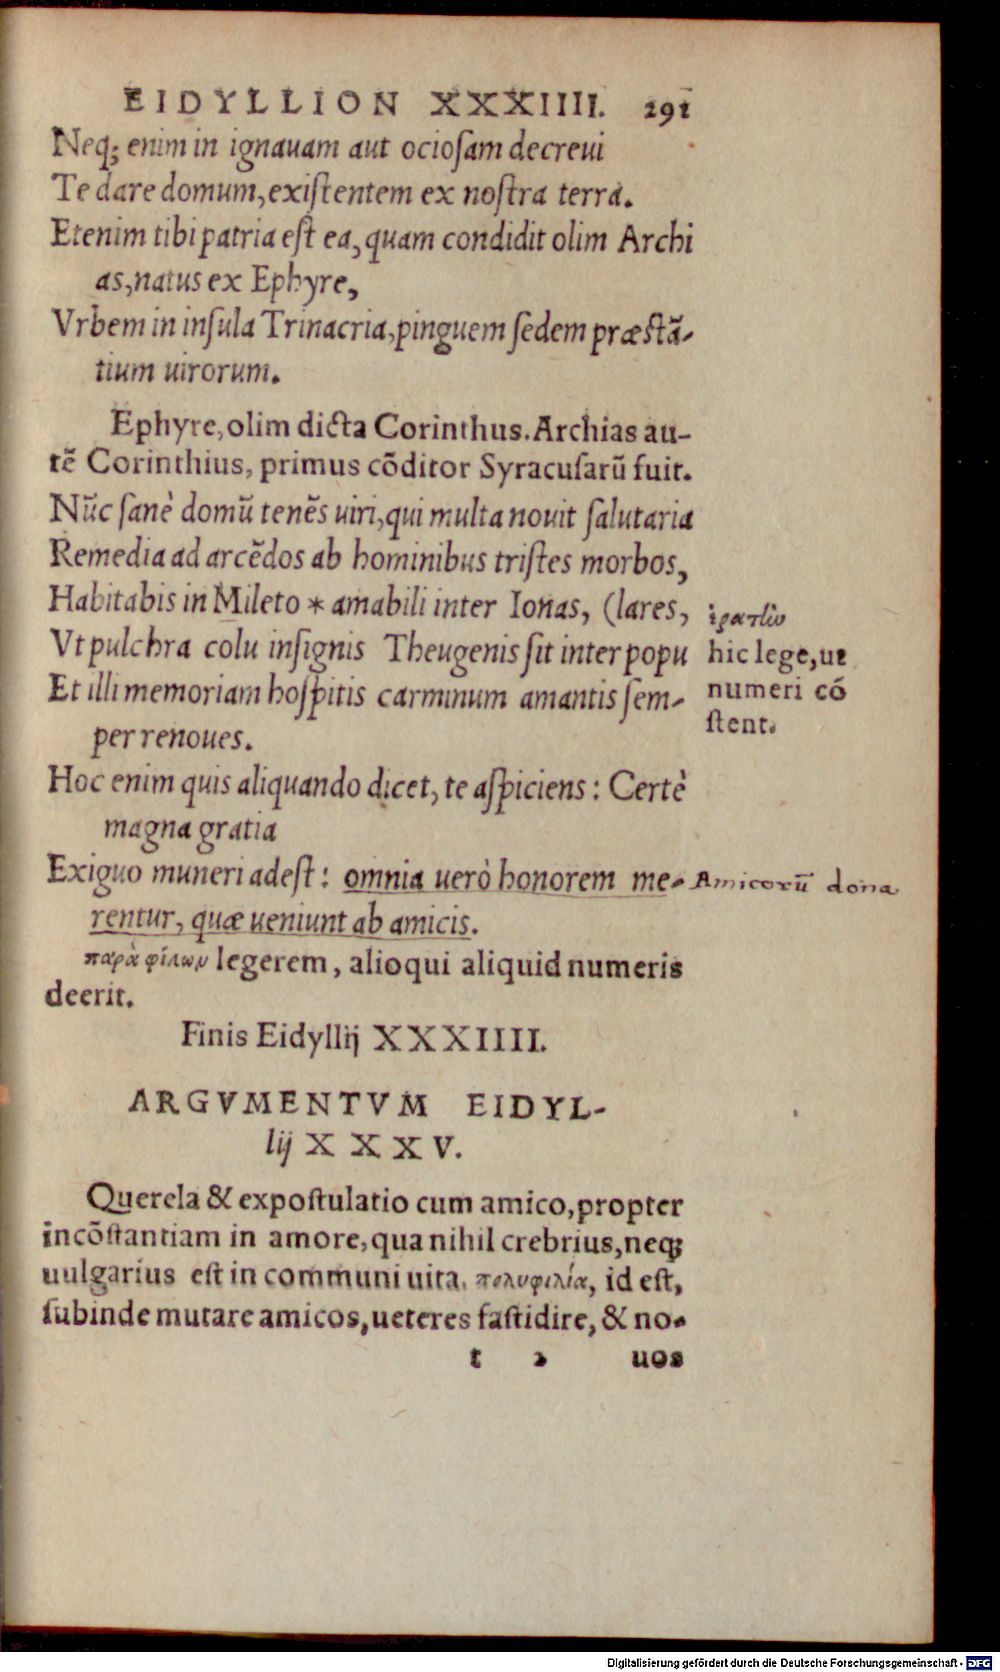 EIDYLLION XXXIIII. 291
Neq; enim in ignauam aut ociosam decreui
Te dare domum, existentem ex nostra terra.
Etenim tibi patria est ea, quam condidit olim Archi
as, natus ex Ephyre,
Vrbem in insula Trinacria, pinguem sedem præstã-
tium uirorum.
Ephyre, olim dicta Corinthus. Archias au-
tẽ Corinthius, primus cõditor Syracusarũ fuit.
Nũc sanè domũ tenẽs uiri, qui multa nouit salutaria
Remedia ad arcẽdos ab hominibus tristes morbos,
Habitabis in Mileto * amabili inter Ionas, (lares,
Vt pulchra colu insignis Theugenis sit inter popu
Et illi memoriam hospitis carminum amantis sem-
per renoues.
Hoc enim quis aliquando dicet, te aspiciens: Certè
magna gratia
Exiguo muneri adest: omnia uerò honorem me-
rentur, quæ ueniunt ab amicis.
παρὰ φίλων legerem, alioqui aliquid numeris
deerit.
Finis Eidyllij XXXIIII.
ARGVMENTVM EIDYL-
lij XXXV.
Querela & expostulatio cum amico, propter
incõstantiam in amore, qua nihil crebrius, neq;
uulgarius est in communi uita. πολυφιλία, id est,
subinde mutare amicos, ueteres fastidire, & no-
t 2 uos
hic lege, ut
numeri cõ
stent.
Amicorũ dona
Digitalisierung gefördert durch die Deutsche Forschungsgemeinschaft - DFG